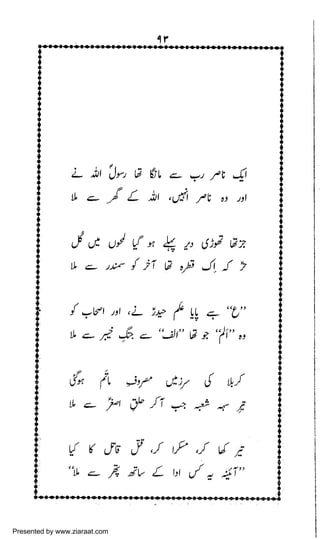 ۹۳
ایک ناصر رب سے مانگا تھا رسولؐ اللہ نے
اور وہ ناصر انہیں، اللہ کے گھر سے ملا
جز تھا تھوڑی دیر پہلے ہو گیا لمحوں میں کُل
حُرؑ کہ اِک قطرہ تھا آخر کو سمندر سے ملا
”ع“ سے پایا علم حیدرؑ نے، اور اصحاب کو
وہ ”اَلَم“ جو تھا ”الف“ سے جنگِ خیبر سے ملا
کربلا کی سرزمیں مصروفِ ماتم ہوگئی
تیرِ سہہ شعبہ جب آکر حلقِ اصغرؑ سے ملا
تیر کھا کر، مسکرا کر، قتل قاتل کا کیا
”آئینہ یہ کس ادا کے ساتھ پتھر سے ملا“
Presented by www.ziaraat.com